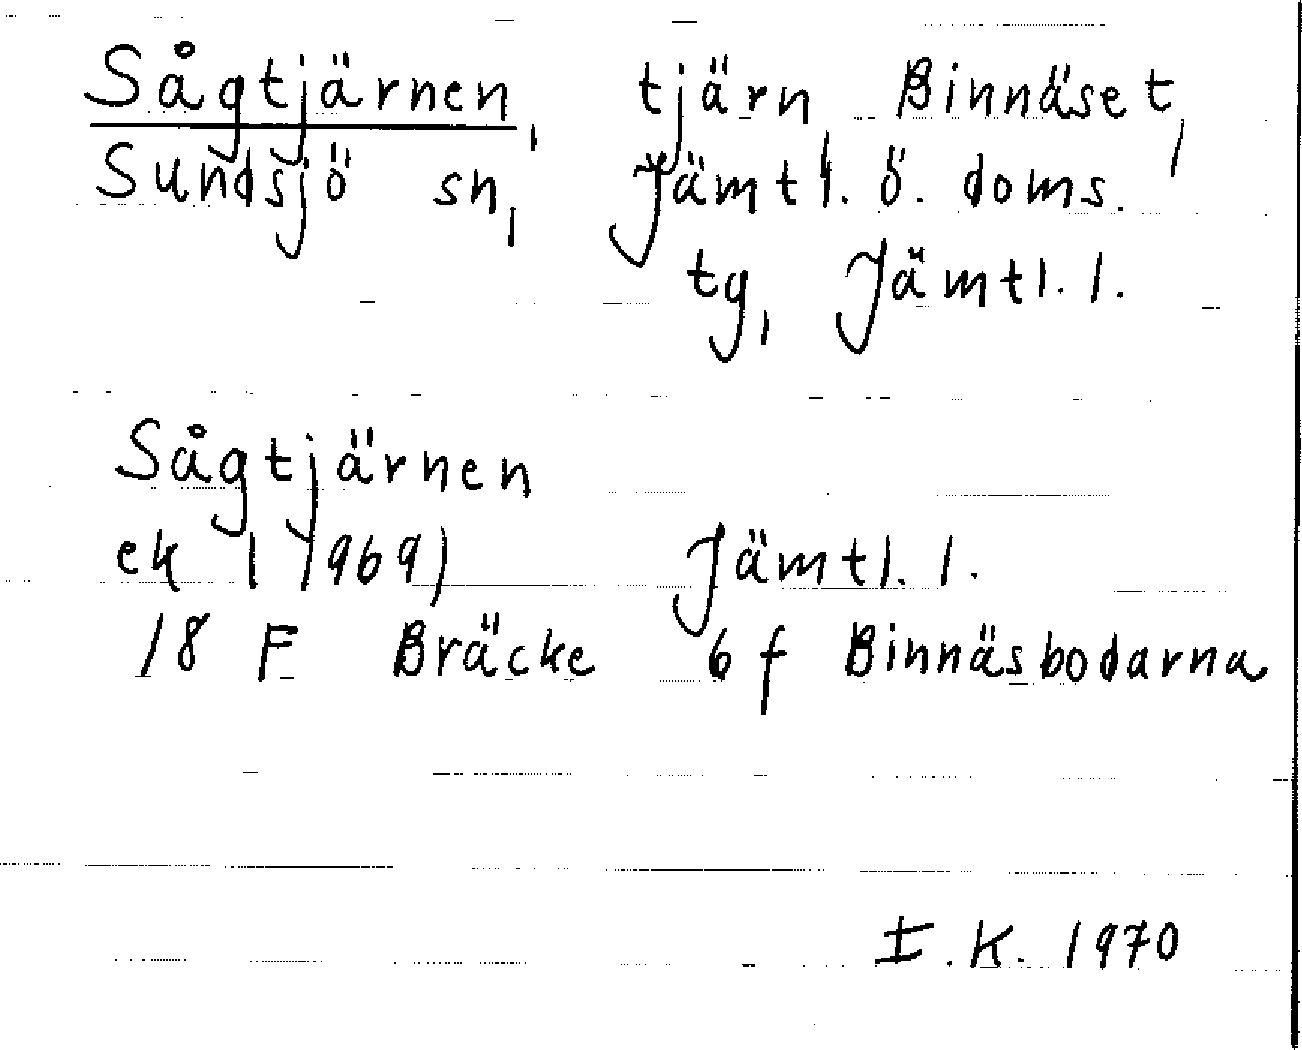 Sågtjärnen, tjärn, Binnäset,
Sundsjö sn, Jämtl. ö. doms.
tg, Jämtl. l.
Sågtjärnen
ek (1969) Jämtl. l.
18 F Bräcke 6 f Binnäsbodarna
I. K. 1970